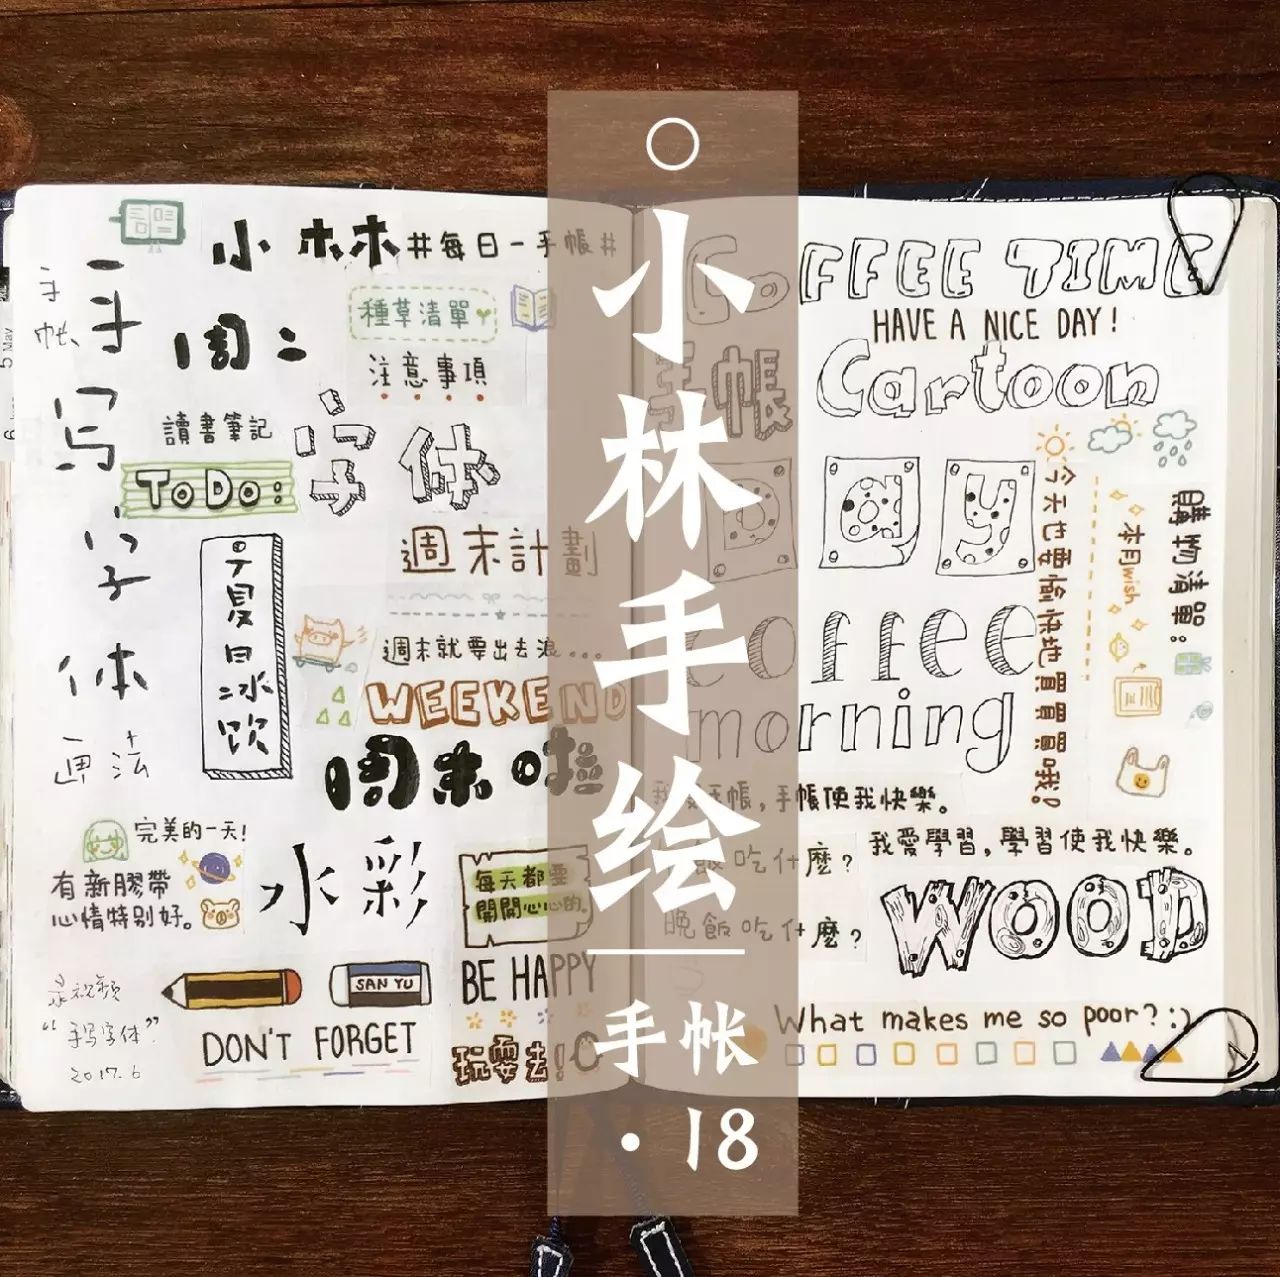 小林手绘
手帐
·18
小林#每日一手帳#
手帐
手写字体画法
周二
種草清單
注意事項
讀書筆記
字体
TODO:
夏日冰饮
週末計劃
週末就要出去浪...
WEEKEND
周末啦
完美的一天!
有新膠帶
心情特别好。
水彩
每天都要
開開心心的。
SAN YU
BE HAPPY
录视频
“手写字体”
2017.6
DON'T FORGET
玩耍去!
5 May
COFFEE TIME
HAVE A NICE DAY!
手帳
Cartoon
a
y
今天也要愉快地買買買哦!
本月wish
購物清單:
coffee
morning
手帳使我快樂。
我愛學習,學習使我快樂。
飯吃什麼?
晚飯吃什麼?
WOOD
What makes me so poor?:)